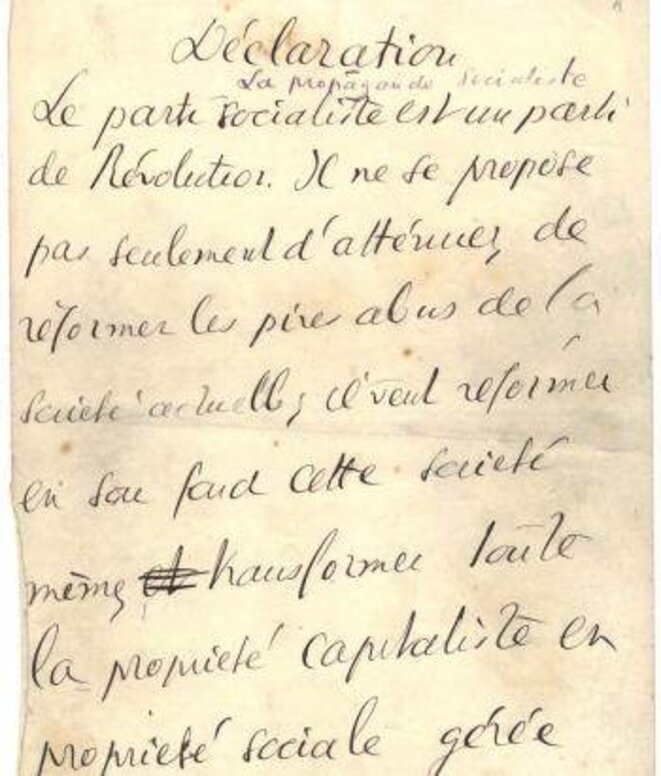 Déclaration
La propagande socialiste
Le parti socialiste est un parti
de Révolution. Il ne se propose
pas seulement d'atténuer, de
réformer les pires abus de la
société actuelle, il veut réformer
en son fond cette société
même, et transformer toute
la propriété capitaliste en
propriété sociale gérée